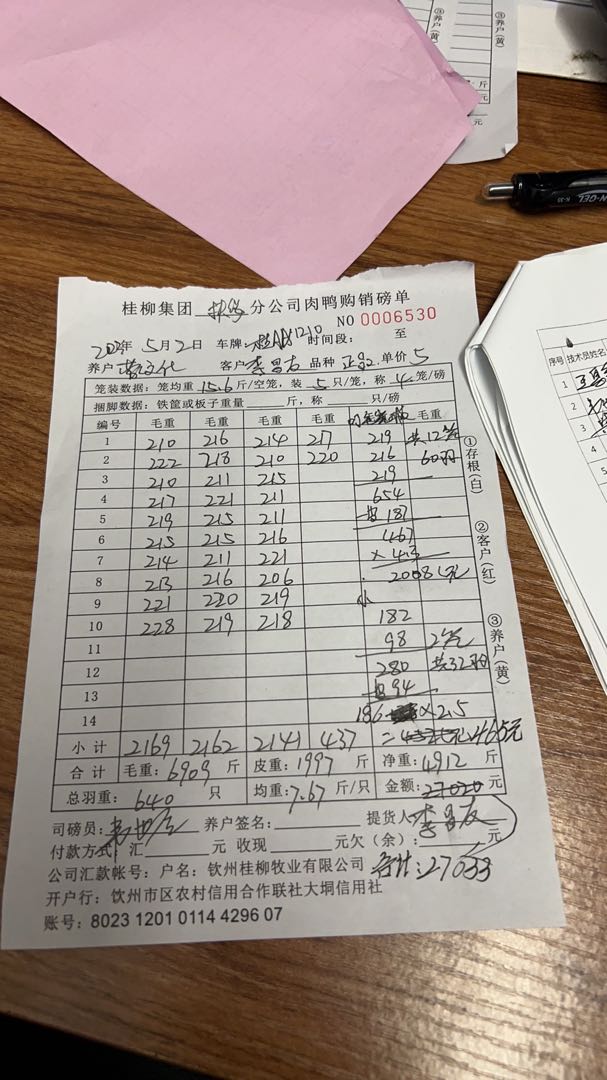 ③养户(黄)
斤
元
元
桂柳集团 分公司肉鸭购销磅单
NO 0006530
5月2日 车牌: 1210 时间段: 至
养户 客户 李昌友 品种 正品 单价 5
笼装数据: 笼均重 15.6 斤/空笼, 装 5 只/笼, 称 4 笼/磅
捆脚数据: 铁筐或板子重量 斤, 称 只/磅
编号 毛重 毛重 毛重 毛重 毛重
1 210 216 214 217 219 共12笼
2 222 218 210 220 216 60羽
3 210 211 215 219
4 217 221 211 654
5 219 215 211 187
6 215 215 216 467
7 214 211 221 ×4.3
8 213 216 206 2008元
9 221 220 219
10 228 219 218 182
11 98 2笼
12 280 共32羽
13 94
14 186 ×2.5
小计 2169 2162 2141 437 =465元
合计 毛重: 6909 斤 皮重: 1997 斤 净重: 4912 斤
总羽重: 640 只 均重: 7.67 斤/只 金额: 27020 元
司磅员: 养户签名: 提货人 李昌友
付款方式: 汇 元 收现 元欠(余): 元
公司汇款帐号: 户名: 钦州桂柳牧业有限公司 合计: 27033
开户行: 钦州市区农村信用合作联社大垌信用社
账号: 8023 1201 0114 4296 07
①存根(白)
②客户(红)
③养户(黄)
GEL
K-35
序号 技术员姓名
1
2
3
4
5